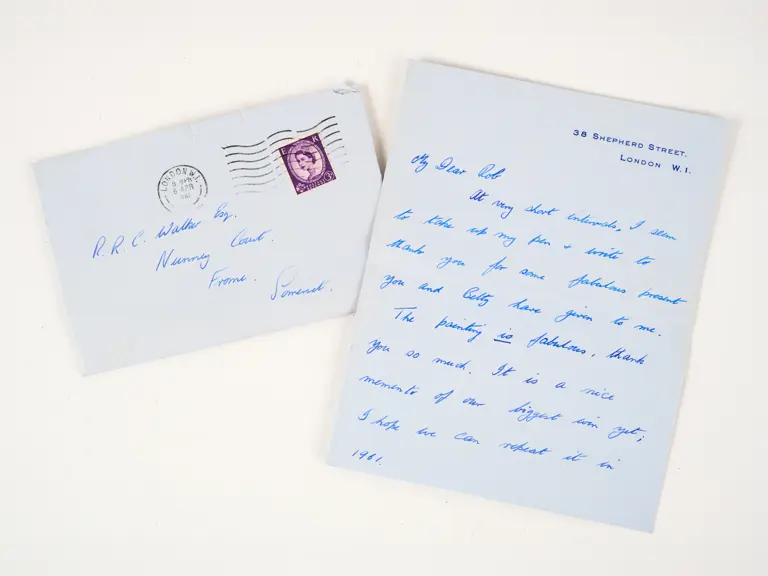 LONDON. W.1.
6 APR
R. R. C. Walker Esq.
Nunney Court.
Frome.
Somerset.
38 SHEPHERD STREET.
LONDON W.1.
My Dear Rob
At very short intervals, I seem
to take up my pen & write to
thank you for some fabulous present
you and Betty have given to me.
The painting is fabulous, thank
you so much. It is a nice
memento of our biggest win yet;
I hope we can repeat it in
1961.